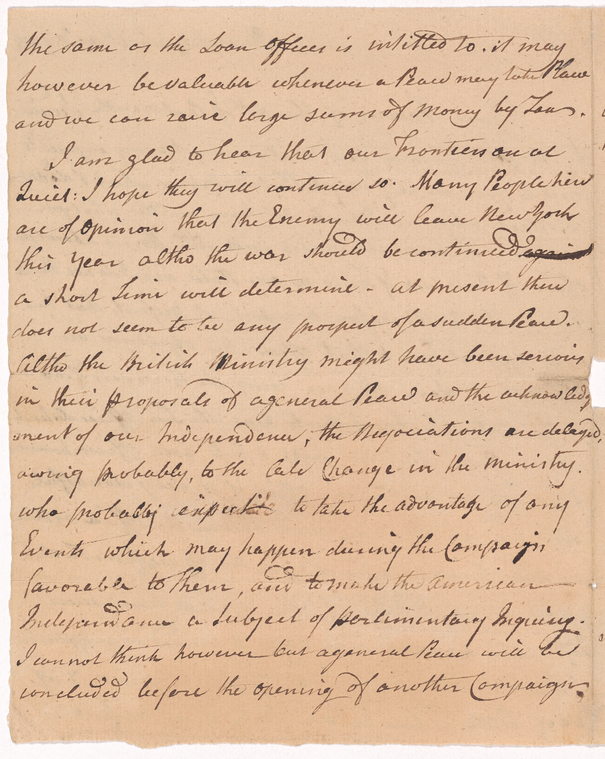 the same as the Loan offices is intitled to. it may
however be valuable whenever a Peace may take Place
and we can raise large sums of Money by Tax.
I am glad to hear that our Frontiers are at
Quiet: I hope they will continue so. Many People here
are of opinion that the Enemy will leave New York
this Year altho the war should be continued again
a short time will determine - at present there
does not seem to be any prospect of a sudden Peace.
altho the British Ministry might have been serious
in their proposals of a general Peace and the acknowledg
ment of our Independence, the Negociations are delayed,
owing probably, to the late Change in the ministry.
who probably expect to take the advantage of any
Events which may happen during the Campaign
favorable to them, and to make the American
Independance a Subject of parlimentary Inquiry.
I cannot think however but a general Peace will be
concluded before the opening of another Campaign.